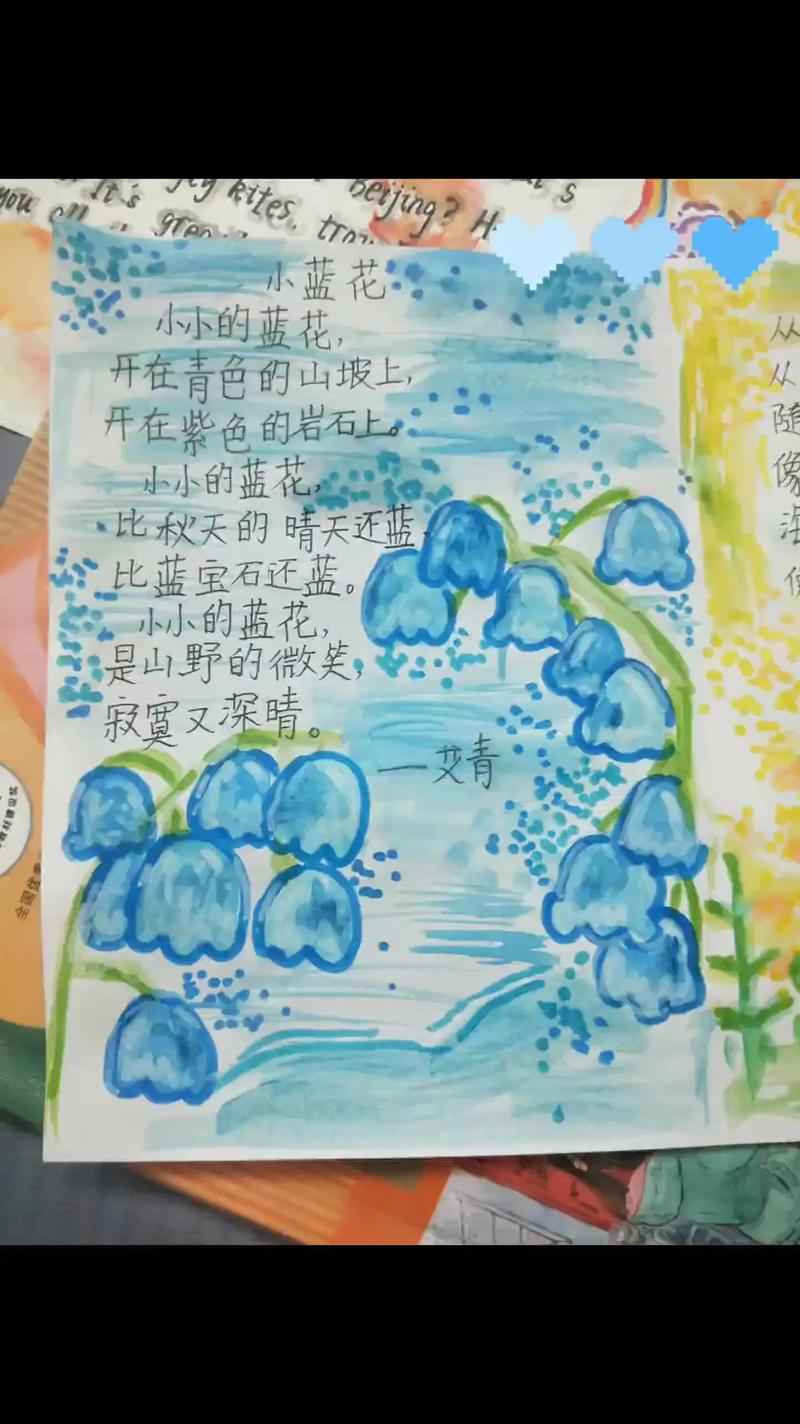 It's fly kites,
Beijing? H
you
小蓝花
小小的蓝花,
开在青色的山坡上,
开在紫色的岩石上。
小小的蓝花,
比秋天的晴天还蓝,
比蓝宝石还蓝。
小小的蓝花,
是山野的微笑,
寂寞又深晴。
—艾青
从
从
随
像
全国优